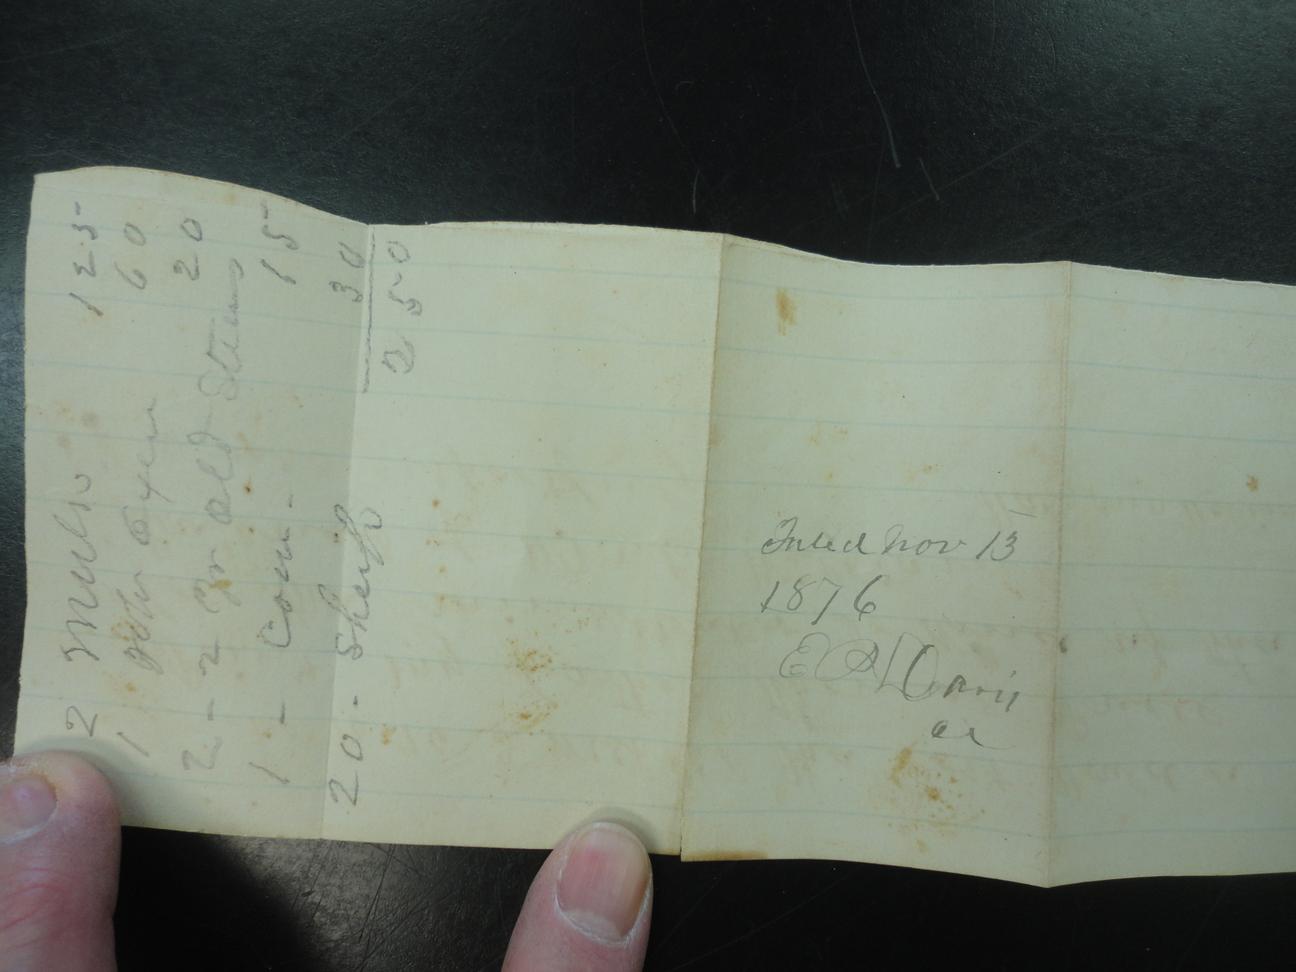 2 Mules 125
1 yoke oxen 60
2 - 2 yr old Steers 20
1 - Cow - 15
20 - Sheep 30
250
Filed Nov 13
1876
E P Davis